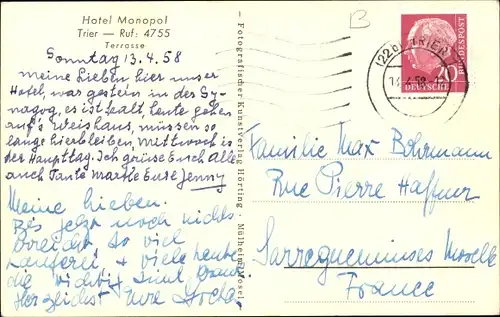 Hotel Monopol
Trier — Ruf: 4755
Terrasse
Sonntag 13.4.58
meine Lieben hier unser
Hotel, war gestern in der Sy-
nagog, es ist kalt, heute gehen
auf's Weishaus, müssen so
lange hierbleiben, Mittwoch is
der Haupttag. Ich grüse Euch Alle
auch Tante Martle Eure Jenny
Meine Lieben.
Bis jetzt noch nichts
so viel
Lauferei & viele heute
die
Herzlichst Eure
- Fotografischer Kunstverlag Hörting - Mülheim/Mosel
B
(22b) TRIER
20
DEUTSCHE
BUNDESPOST
Familie Max Bohrmann
Rue Pierre Haffner
Sarreguemines Moselle
France